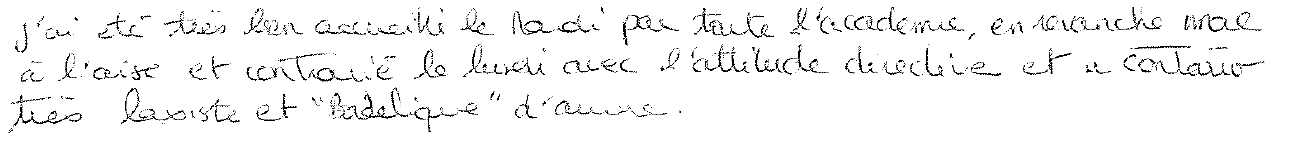 J'ai été très bien accueilli le Mardi par toute l'academie, en revanche mal
à l'aise et contrarié le lundi avec l'attitude directive et
très laxiste et "Bordelique" d'